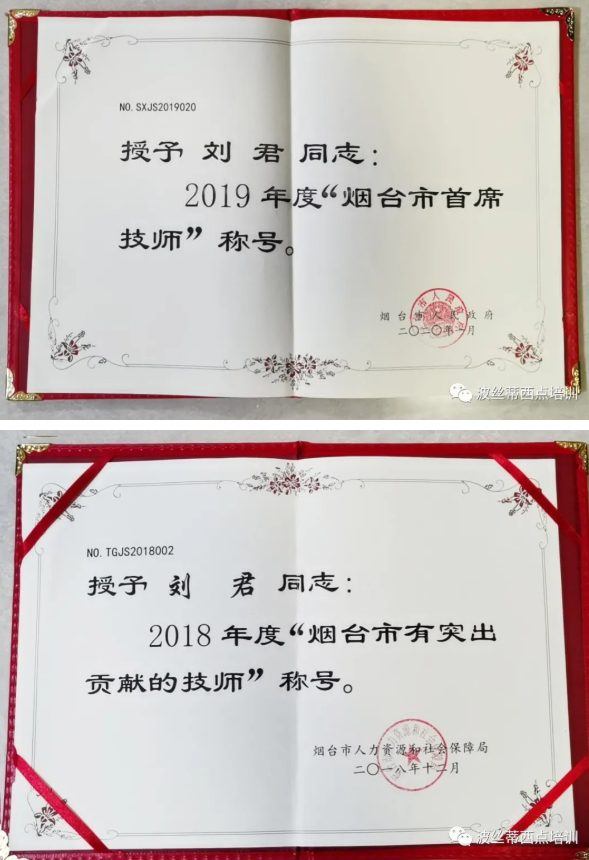 NO. SXJS2019020
授予 刘 君 同志：
2019 年度“烟台市首席
技师”称号。
烟台市人民政府
二〇二〇年一月
波丝蒂西点培训
NO. TGJS2018002
授予 刘 君 同志：
2018 年度“烟台市有突出
贡献的技师”称号。
烟台市人力资源和社会保障局
二〇一八年十二月
波丝蒂西点培训